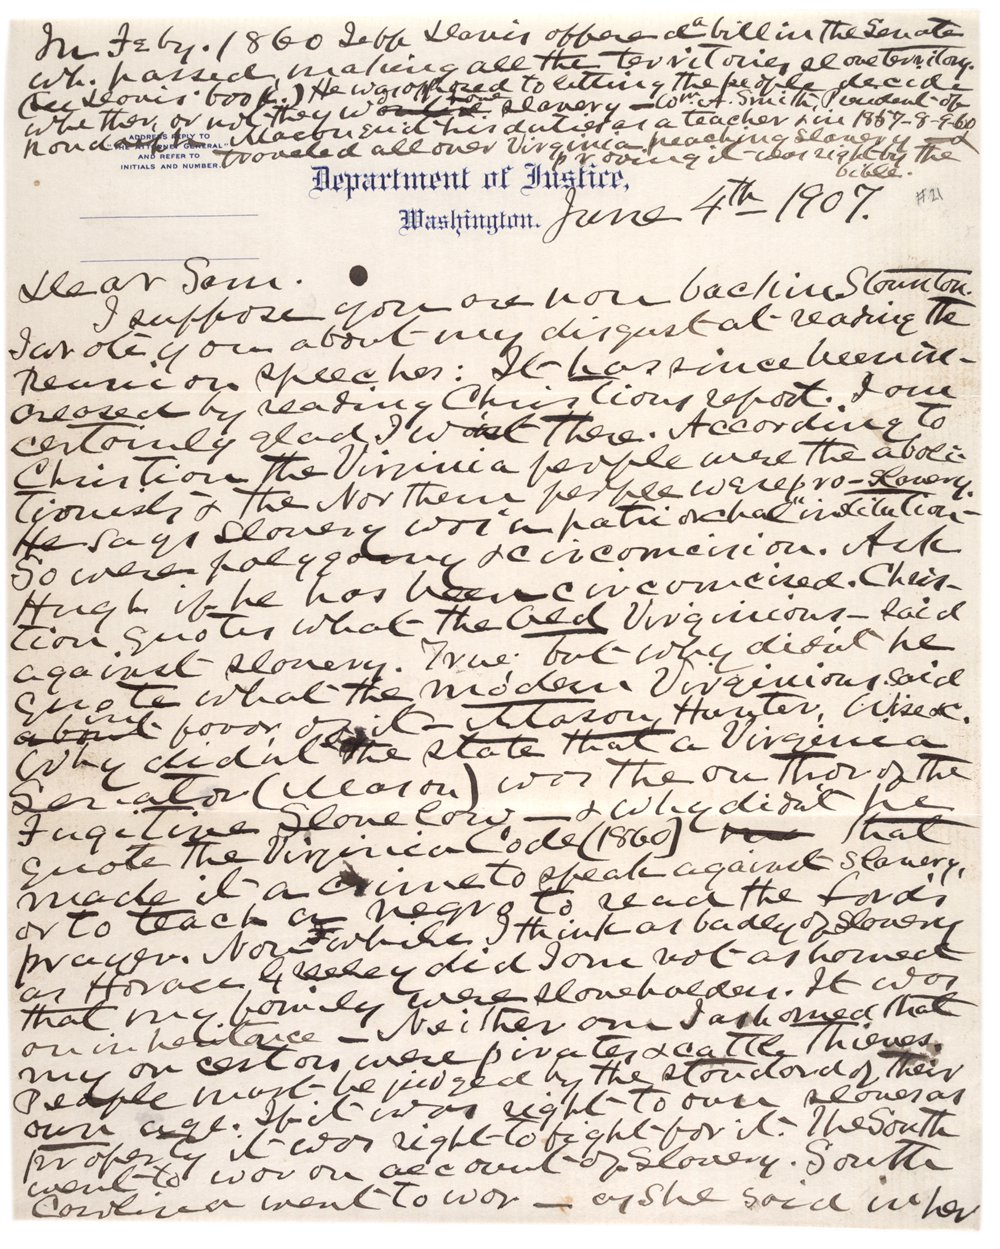 In Feby. 1860 Jeff Davis offered a bill in the Senate
wh. passed, making all the territories slave territory.
(see Davis' book.) He was opposed to letting the people decide
whether or not they wd have slavery - Wm A. Smith, President of
Randolph Macon quit his duties as a teacher & in 1857-8-9-60
traveled all over Virginia preaching slavery &
proving it was right by the
bible.
ADDRESS REPLY TO
"THE ATTORNEY GENERAL"
AND REFER TO
INITIALS AND NUMBER.
Department of Justice,
Washington.
June 4th 1907.
#21
Dear Sam.
I suppose you are now back in Staunton.
I wrote you about my disgust at reading the
Reunion speeches: It has since been in-
creased by reading Christians report. I am
certainly glad I wasn't there. According to
Christian the Virginia people were the aboli-
tionists & the Northern people were pro-slavery.
He says slavery was "a patriarchal" institution -
So were polygamy & circumcision. Ask
Hugh if he has been circumcised. Chris-
tian quotes what the Old Virginians - said
against slavery. True; but why didn't he
quote what the modern Virginians said
in favor of it - Mason, Hunter, Wise &c.
Why didn't he state that a Virginia
Senator (Mason) was the author of the
Fugitive Slave law - & why didn't he
quote the Virginia Code (1860) that
made it a crime to speak against slavery,
or to teach a negro to read the Lord's
prayer. Now while I think as badly of slavery
as Horace Greeley did I am not ashamed
that my family were slaveholders. It was
our inheritance - Neither am I ashamed that
my ancestors were pirates & cattle thieves.
People must be judged by the standard of their
own age. If it was right to own slaves as
property it was right to fight for it. The South
went to war on account of Slavery. South
Carolina went to war - as she said in her